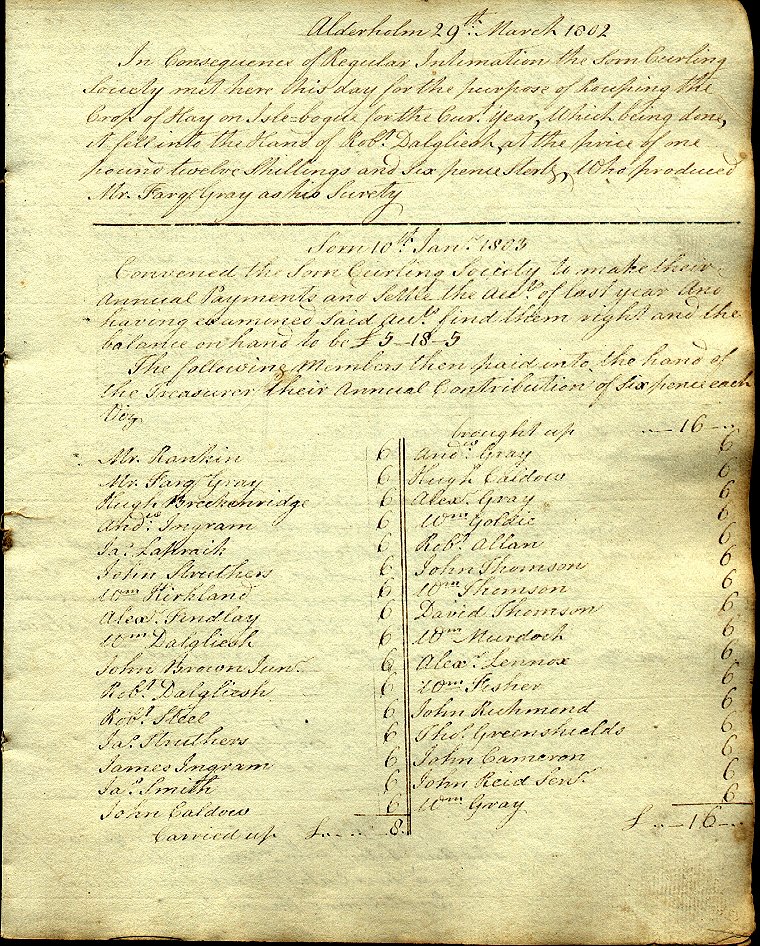 Alderholm 29th March 1802
In Consequence of Regular Intimation the Sorn Curling
Society met here this day for the purpose of Rouping the
Crop of Hay on Isle-bogue for the Curt. Year, Which being done,
it fell into the Hand of Robt. Dalgliesh, at the price of one
pound twelve Shillings and six pence Sterlg, Who produced
Mr. Farqr. Gray as his Surety
Sorn 10th Janr. 1803
Convened the Sorn Curling Society to make their
Annual Payments and Settle the Acts. of last year And
having examined said Acts. find them right and the
balance on hand to be £5-18-5
The following Members then paid into the hand of
the Treasurer their Annual Contribution of Six pence each
Viz
Mr. Rankin 6
Mr. Farqr Gray 6
Hugh Breckenridge 6
Andw. Ingram 6
Jas. Lambraith 6
John Struthers 6
Wm Kirkland 6
Alexr. Findlay 6
Wm Dalgliesh 6
John Brown Junr. 6
Robt. Dalgliesh 6
Robt. Steel 6
Jas. Struthers 6
James Ingram 6
Jas. Smith 6
John Caldow 6
Carried up £ .. .. 8 ..
brought up .. 16 ..
Andw. Gray 6
Hugh Caldow 6
Alexr. Gray 6
Wm Goldie 6
Robt. Allan 6
John Thomson 6
Wm Thomson 6
David Thomson 6
Wm Murdoch 6
Alexr. Lennox 6
Wm Fisher 6
John Richmond 6
Thos. Greenshields 6
John Cameron 6
John Reid Senr. 6
Wm Gray 6
£ .. 16 ..